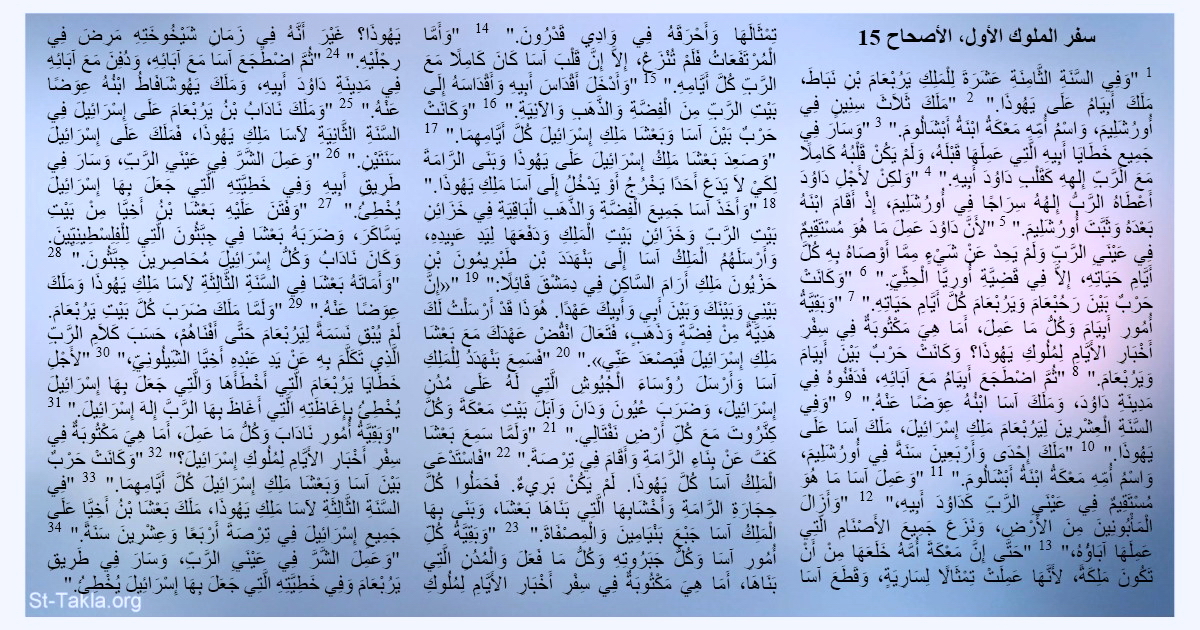 سفر الملوك الأول، الأصحاح 15
1 "وَفِي السَّنَةِ الثَّامِنَةِ عَشَرَةَ لِلْمَلِكِ يَرُبْعَامَ بْنِ نَبَاطَ،
مَلَكَ أَبِيَامُ عَلَى يَهُوذَا." 2 "مَلَكَ ثَلاَثَ سِنِينٍ فِي
أُورُشَلِيمَ، وَاسْمُ أُمِّهِ مَعْكَةُ ابْنَةُ أَبْشَالُومَ." 3 "وَسَارَ فِي
جَمِيعِ خَطَايَا أَبِيهِ الَّتِي عَمِلَهَا قَبْلَهُ، وَلَمْ يَكُنْ قَلْبُهُ كَامِلًا
مَعَ الرَّبِّ إِلهِهِ كَقَلْبِ دَاوُدَ أَبِيهِ." 4 "وَلكِنْ لأَجْلِ دَاوُدَ
أَعْطَاهُ الرَّبُّ إِلهُهُ سِرَاجًا فِي أُورُشَلِيمَ، إِذْ أَقَامَ ابْنَهُ
بَعْدَهُ وَثَبَّتَ أُورُشَلِيمَ." 5 "لأَنَّ دَاوُدَ عَمِلَ مَا هُوَ مُسْتَقِيمٌ
فِي عَيْنَيِ الرَّبِّ وَلَمْ يَحِدْ عَنْ شَيْءٍ مِمَّا أَوْصَاهُ بِهِ كُلَّ
أَيَّامِ حَيَاتِهِ، إِلاَّ فِي قَضِيَّةِ أُورِيَّا الْحِثِّيِّ." 6 "وَكَانَتْ
حَرْبٌ بَيْنَ رَحُبْعَامَ وَيَرُبْعَامَ كُلَّ أَيَّامِ حَيَاتِهِ." 7 "وَبَقِيَّةُ
أُمُورِ أَبِيَامَ وَكُلُّ مَا عَمِلَ، أَمَا هِيَ مَكْتُوبَةٌ فِي سِفْرِ
أَخْبَارِ الأَيَّامِ لِمُلُوكِ يَهُوذَا؟ وَكَانَتْ حَرْبٌ بَيْنَ أَبِيَامَ
وَيَرُبْعَامَ." 8 "ثُمَّ اضْطَجَعَ أَبِيَامُ مَعَ آبَائِهِ، فَدَفَنُوهُ فِي
مَدِينَةِ دَاوُدَ، وَمَلَكَ آسَا ابْنُهُ عِوَضًا عَنْهُ." 9 "وَفِي
السَّنَةِ الْعِشْرِينَ لِيَرُبْعَامَ مَلِكِ إِسْرَائِيلَ، مَلَكَ آسَا عَلَى
يَهُوذَا." 10 "مَلَكَ إِحْدَى وَأَرْبَعِينَ سَنَةً فِي أُورُشَلِيمَ،
وَاسْمُ أُمِّهِ مَعْكَةُ ابْنَةُ أَبْشَالُومَ." 11 "وَعَمِلَ آسَا مَا هُوَ
مُسْتَقِيمٌ فِي عَيْنَيِ الرَّبِّ كَدَاوُدَ أَبِيهِ،" 12 "وَأَزَالَ
الْمَأْبُونِينَ مِنَ الأَرْضِ، وَنَزَعَ جَمِيعَ الأَصْنَامِ الَّتِي
عَمِلَهَا آبَاؤُهُ،" 13 "حَتَّى إِنَّ مَعْكَةَ أُمَّهُ خَلَعَهَا مِنْ أَنْ
تَكُونَ مَلِكَةً، لأَنَّهَا عَمِلَتْ تِمْثَالًا لِسَارِيَةٍ، وَقَطَعَ آسَا
تِمْثَالَهَا وَأَحْرَقَهُ فِي وَادِي قَدْرُونَ." 14 "وَأَمَّا
الْمُرْتَفَعَاتُ فَلَمْ تُنْزَعْ، إِلاَّ إِنَّ قَلْبَ آسَا كَانَ كَامِلًا مَعَ
الرَّبِّ كُلَّ أَيَّامِهِ." 15 "وَأَدْخَلَ أَقْدَاسَ أَبِيهِ وَأَقْدَاسَهُ إِلَى
بَيْتِ الرَّبِّ مِنَ الْفِضَّةِ وَالذَّهَبِ وَالآنِيَةِ." 16 "وَكَانَتْ
حَرْبٌ بَيْنَ آسَا وَبَعْشَا مَلِكِ إِسْرَائِيلَ كُلَّ أَيَّامِهِمَا." 17
"وَصَعِدَ بَعْشَا مَلِكُ إِسْرَائِيلَ عَلَى يَهُوذَا وَبَنَى الرَّامَةَ
لِكَيْ لاَ يَدَعَ أَحَدًا يَخْرُجُ أَوْ يَدْخُلُ إِلَى آسَا مَلِكِ يَهُوذَا."
18 "وَأَخَذَ آسَا جَمِيعَ الْفِضَّةِ وَالذَّهَبِ الْبَاقِيَةِ فِي خَزَائِنِ
بَيْتِ الرَّبِّ وَخَزَائِنِ بَيْتِ الْمَلِكِ وَدَفَعَهَا لِيَدِ عَبِيدِهِ،
وَأَرْسَلَهُمُ الْمَلِكُ آسَا إِلَى بَنْهَدَدَ بْنِ طَبْرِيمُونَ بْنِ
حَزْيُونَ مَلِكِ أَرَامَ السَّاكِنِ فِي دِمَشْقَ قَائِلًا:" 19 "«إِنَّ
بَيْنِي وَبَيْنَكَ وَبَيْنَ أَبِي وَأَبِيكَ عَهْدًا. هُوَذَا قَدْ أَرْسَلْتُ لَكَ
هَدِيَّةً مِنْ فِضَّةٍ وَذَهَبٍ، فَتَعَالَ انْقُضْ عَهْدَكَ مَعَ بَعْشَا
مَلِكِ إِسْرَائِيلَ فَيَصْعَدَ عَنِّي»." 20 "فَسَمِعَ بَنْهَدَدُ لِلْمَلِكِ
آسَا وَأَرْسَلَ رُؤَسَاءَ الْجُيُوشِ الَّتِي لَهُ عَلَى مُدُنِ
إِسْرَائِيلَ، وَضَرَبَ عُيُونَ وَدَانَ وَآبَلَ بَيْتِ مَعْكَةَ وَكُلَّ
كِنَّرُوتَ مَعَ كُلِّ أَرْضِ نَفْتَالِي." 21 "وَلَمَّا سَمِعَ بَعْشَا
كَفَّ عَنْ بِنَاءِ الرَّامَةِ وَأَقَامَ فِي تِرْصَةَ." 22 "فَاسْتَدْعَى
الْمَلِكُ آسَا كُلَّ يَهُوذَا. لَمْ يَكُنْ بَرِيءٌ. فَحَمَلُوا كُلَّ
حِجَارَةِ الرَّامَةِ وَأَخْشَابِهَا الَّتِي بَنَاهَا بَعْشَا، وَبَنَى بِهَا
الْمَلِكُ آسَا جَبْعَ بَنْيَامِينَ وَالْمِصْفَاةَ." 23 "وَبَقِيَّةُ كُلِّ
أُمُورِ آسَا وَكُلُّ جَبَرُوتِهِ وَكُلُّ مَا فَعَلَ وَالْمُدُنِ الَّتِي
بَنَاهَا، أَمَا هِيَ مَكْتُوبَةٌ فِي سِفْرِ أَخْبَارِ الأَيَّامِ لِمُلُوكِ
يَهُوذَا؟ غَيْرَ أَنَّهُ فِي زَمَانِ شَيْخُوخَتِهِ مَرِضَ فِي
رِجْلَيْهِ." 24 "ثُمَّ اضْطَجَعَ آسَا مَعَ آبَائِهِ، وَدُفِنَ مَعَ آبَائِهِ
فِي مَدِينَةِ دَاوُدَ أَبِيهِ، وَمَلَكَ يَهُوشَافَاطُ ابْنُهُ عِوَضًا
عَنْهُ." 25 "وَمَلَكَ نَادَابُ بْنُ يَرُبْعَامَ عَلَى إِسْرَائِيلَ فِي
السَّنَةِ الثَّانِيَةِ لآسَا مَلِكِ يَهُوذَا، فَمَلَكَ عَلَى إِسْرَائِيلَ
سَنَتَيْنِ." 26 "وَعَمِلَ الشَّرَّ فِي عَيْنَيِ الرَّبِّ، وَسَارَ فِي
طَرِيقِ أَبِيهِ وَفِي خَطِيَّتِهِ الَّتِي جَعَلَ بِهَا إِسْرَائِيلَ
يُخْطِئُ." 27 "وَفَتَنَ عَلَيْهِ بَعْشَا بْنُ أَخِيَّا مِنْ بَيْتِ
يَسَّاكَرَ، وَضَرَبَهُ بَعْشَا فِي جِبَّثُونَ الَّتِي لِلْفِلِسْطِينِيِّينَ.
وَكَانَ نَادَابُ وَكُلُّ إِسْرَائِيلَ مُحَاصِرِينَ جِبَّثُونَ." 28
"وَأَمَاتَهُ بَعْشَا فِي السَّنَةِ الثَّالِثَةِ لآسَا مَلِكِ يَهُوذَا وَمَلَكَ
عِوَضًا عَنْهُ." 29 "وَلَمَّا مَلَكَ ضَرَبَ كُلَّ بَيْتِ يَرُبْعَامَ.
لَمْ يُبْقِ نَسَمَةً لِيَرُبْعَامَ حَتَّى أَفْنَاهُمْ، حَسَبَ كَلاَمِ الرَّبِّ
الَّذِي تَكَلَّمَ بِهِ عَنْ يَدِ عَبْدِهِ أَخِيَّا الشِّيلُونِيِّ،" 30 "لأَجْلِ
خَطَايَا يَرُبْعَامَ الَّتِي أَخْطَأَهَا وَالَّتِي جَعَلَ بِهَا إِسْرَائِيلَ
يُخْطِئُ بِإِغَاظَتِهِ الَّتِي أَغَاظَ بِهَا الرَّبَّ إِلهَ إِسْرَائِيلَ." 31
"وَبَقِيَّةُ أُمُورِ نَادَابَ وَكُلُّ مَا عَمِلَ، أَمَا هِيَ مَكْتُوبَةٌ فِي
سِفْرِ أَخْبَارِ الأَيَّامِ لِمُلُوكِ إِسْرَائِيلَ؟" 32 "وَكَانَتْ حَرْبٌ
بَيْنَ آسَا وَبَعْشَا مَلِكِ إِسْرَائِيلَ كُلَّ أَيَّامِهِمَا." 33 "فِي
السَّنَةِ الثَّالِثَةِ لآسَا مَلِكِ يَهُوذَا، مَلَكَ بَعْشَا بْنُ أَخِيَّا عَلَى
جَمِيعِ إِسْرَائِيلَ فِي تِرْصَةَ أَرْبَعًا وَعِشْرِينَ سَنَةً." 34
"وَعَمِلَ الشَّرَّ فِي عَيْنَيِ الرَّبِّ، وَسَارَ فِي طَرِيقِ
يَرُبْعَامَ وَفِي خَطِيَّتِهِ الَّتِي جَعَلَ بِهَا إِسْرَائِيلَ يُخْطِئُ."
St-Takla.org